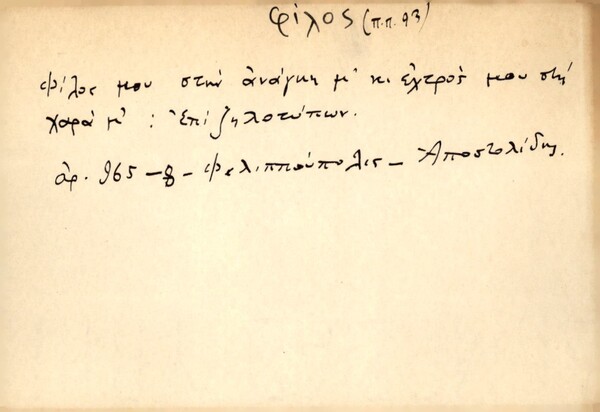 φίλος (π.π. 93)
Φίλος μου στην ἀνάγκη μ' κι ἐχτρὸς μου στή
χαρά μ' : Ἐπί ζηλοτύπων.
ἀρ. 965 - 8 - Φιλιππούπολις - Ἀποστολίδης.